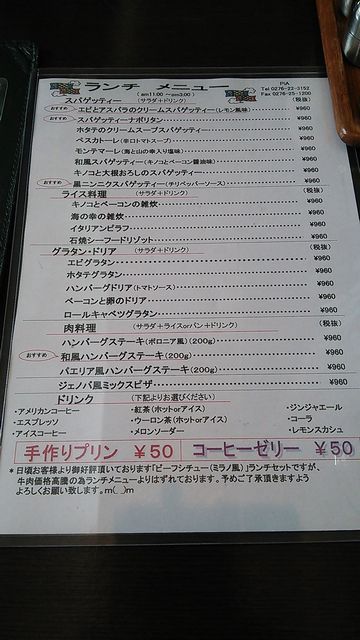 ランチ メニュー
(am11:00 ～pm3:00)
PIA
Tel 0276-22-3152
Fax 0276-25-1200
スパゲッティー (サラダ+ドリンク) (税抜)
おすすめ エビとアスパラのクリームスパゲッティー(レモン風味) ¥960
おすすめ スパゲッティーナポリタン ¥960
ホタテのクリームスープスパゲッティー ¥960
ペスカトーレ(辛口トマトスープ) ¥960
モンテマーレ(海と山の幸入り塩味) ¥960
和風スパゲッティー(キノコとベーコン醤油味) ¥960
キノコと大根おろしのスパゲッティー ¥960
おすすめ 黒ニンニクスパゲッティー(チリペッパーソース) ¥960
ライス料理 (サラダ+ドリンク) (税抜)
キノコとベーコンの雑炊 ¥960
海の幸の雑炊 ¥960
イタリアンピラフ ¥960
石焼シーフードリゾット ¥960
グラタン・ドリア (サラダ+ドリンク) (税抜)
エビグラタン ¥960
ホタテグラタン ¥960
ハンバーグドリア(トマトソース) ¥960
ベーコンと卵のドリア ¥960
ロールキャベツグラタン ¥960
肉料理 (サラダ+ライスorパン+ドリンク) (税抜)
ハンバーグステーキ(ボロニア風)(200g) ¥960
おすすめ 和風ハンバーグステーキ(200g) ¥960
パエリア風ハンバーグステーキ(200g) ¥960
ジェノバ風ミックスピザ ¥960
ドリンク (下記よりお選びください)
・アメリカンコーヒー ・紅茶(ホットorアイス) ・ジンジャエール
・エスプレッソ ・ウーロン茶(ホットorアイス) ・コーラ
・アイスコーヒー ・メロンソーダー ・レモンスカシュ
手作りプリン ¥50 コーヒーゼリー ¥50
*日頃お客様より御好評頂いております「ビーフシチュー(ミラノ風)」ランチセットですが、
牛肉価格高騰の為ランチメニューよりはずれております。予めご了承頂きますよう
よろしくお願い致します。m(__)m